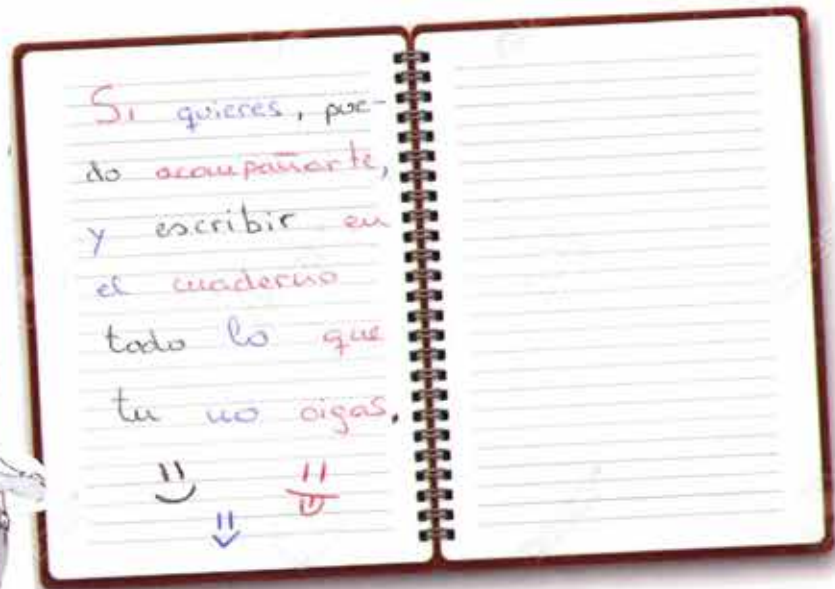 Si quieres, pue-
do acompañarte,
y escribir en
el cuaderno
todo lo que
tu no oigas.